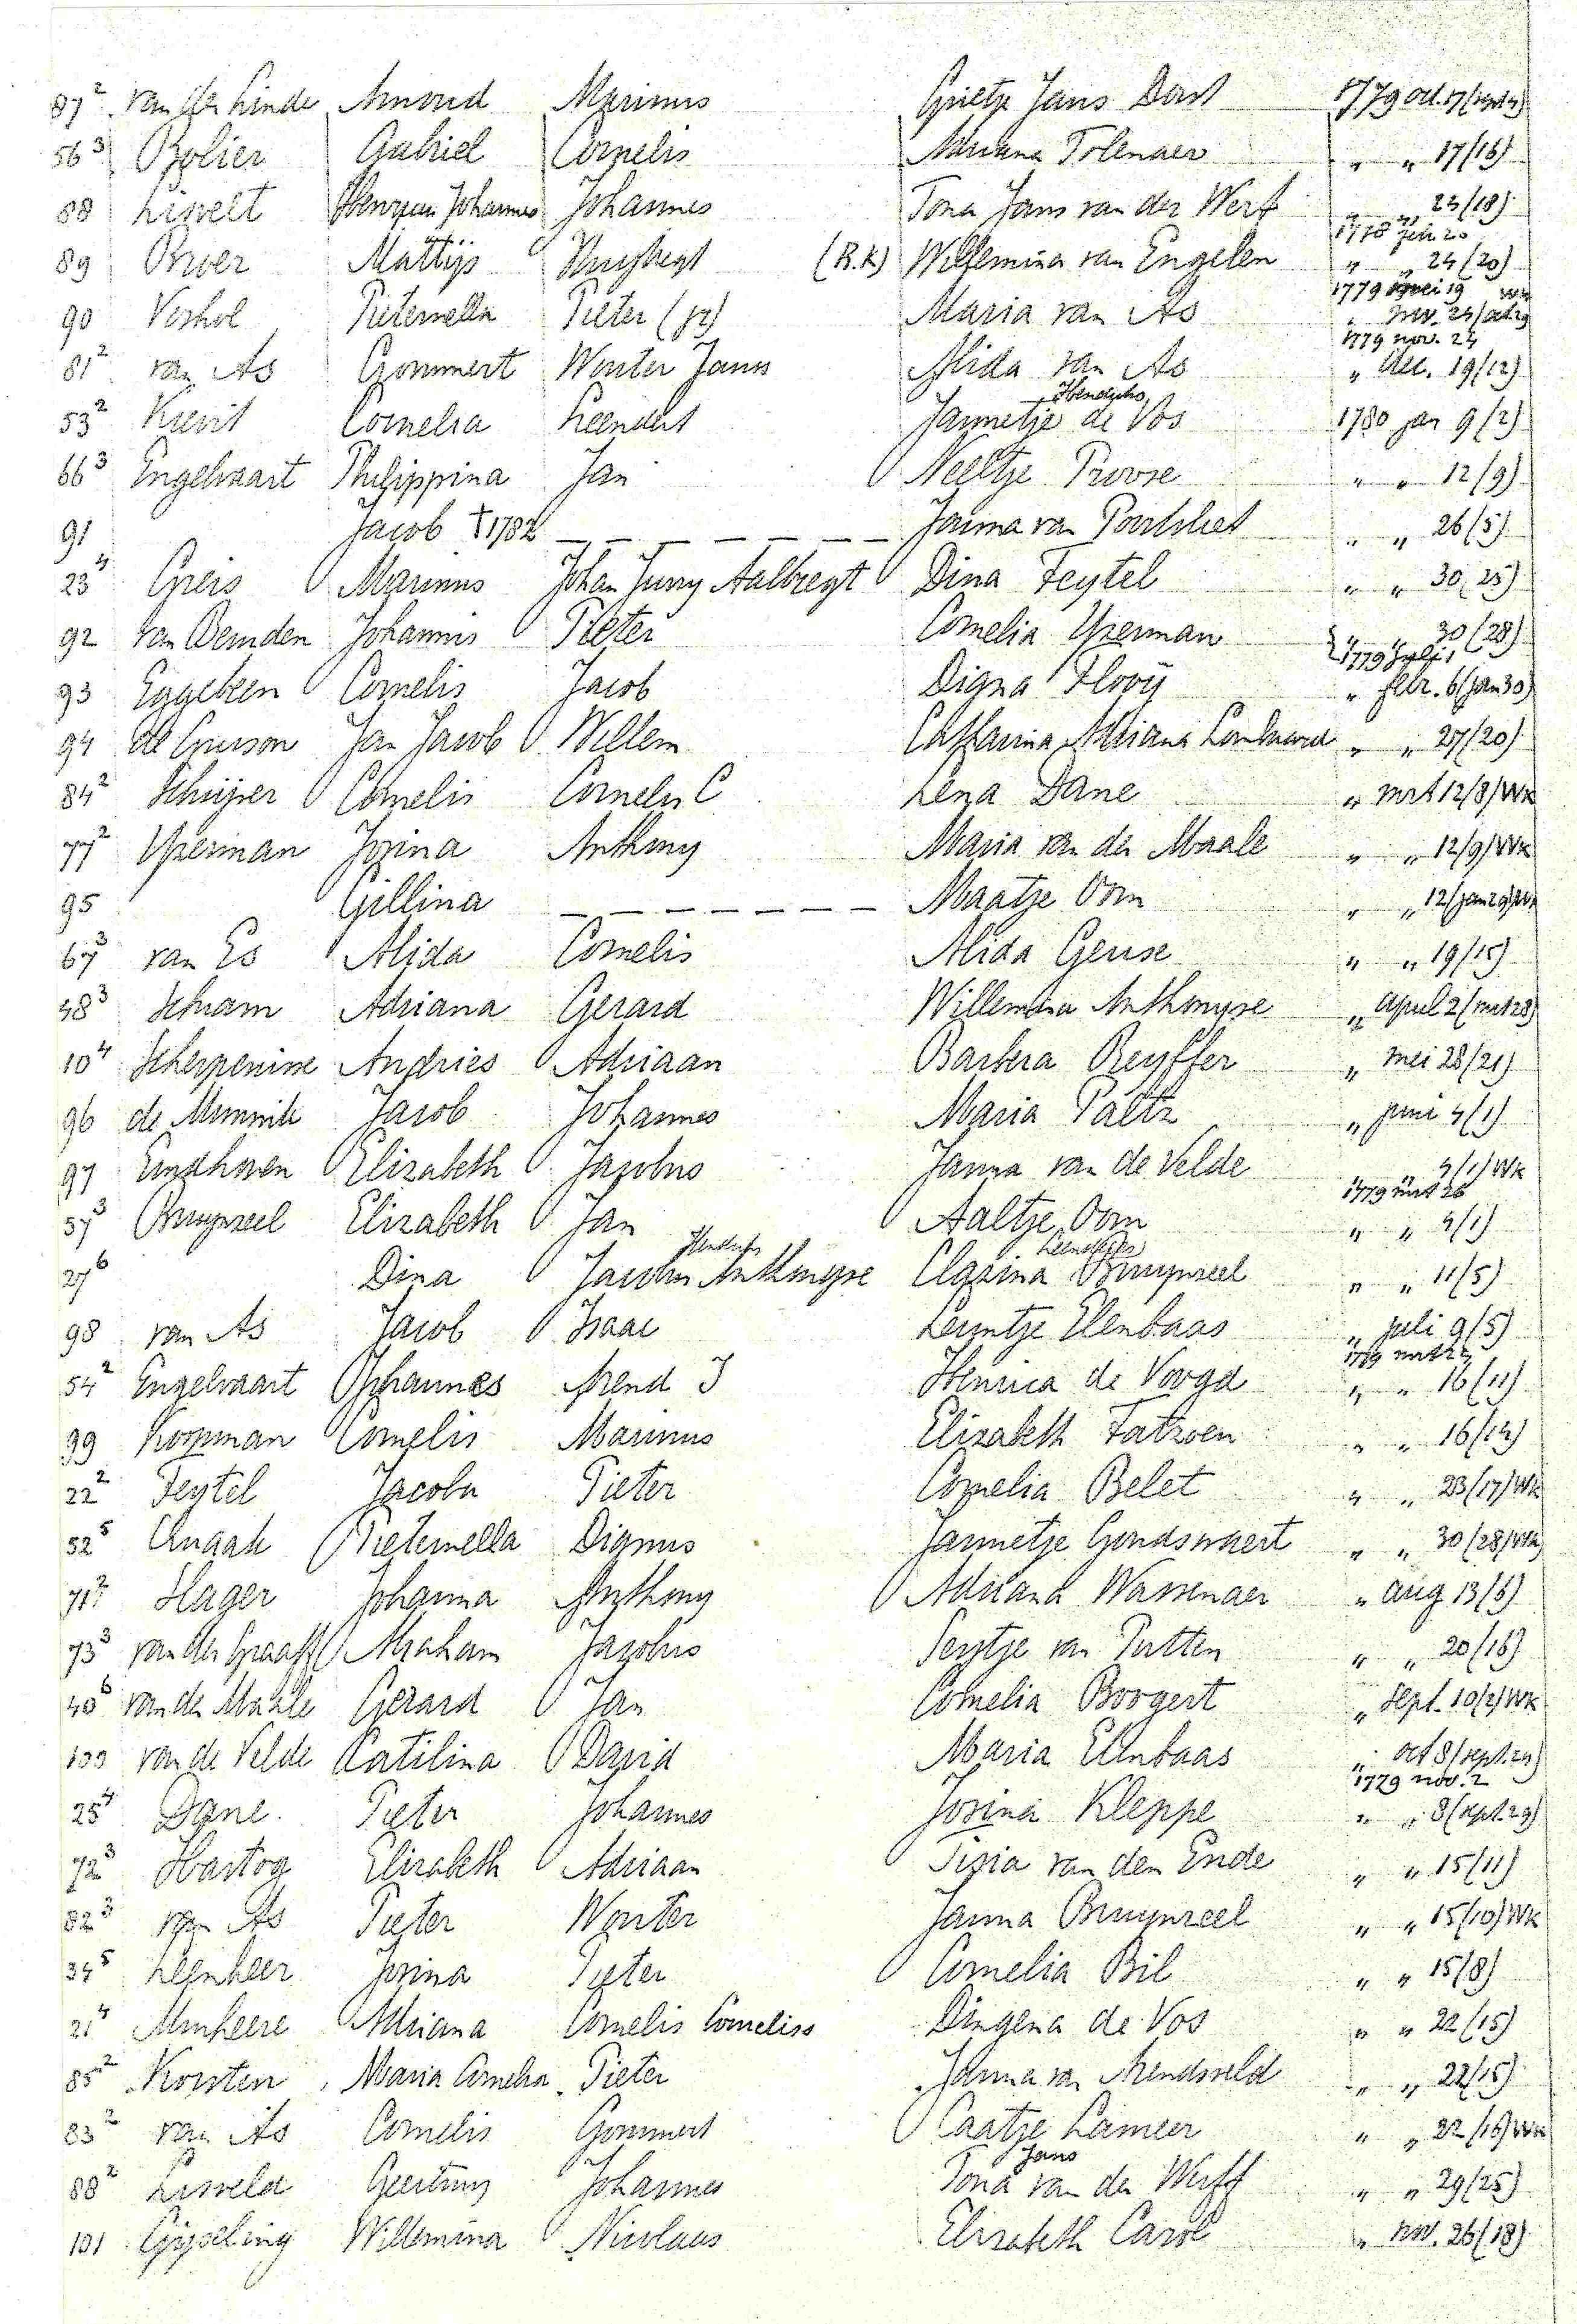 87² van der Linde Arnoud Marinus Grietje Jans Dorst 1779 oct. 17
56³ Bolier Gabriel Cornelis Adriana Tolenaer " " 17(16)
88 Lisvelt Johannes Johannes Tona Jans van der Werf " " 23(18)
1778 20
89 Broer Mattijs Huybregt (R.K) Willemina van Engelen " " 24(20)
1779 mei 19 WK
90 Verhol Pieternella Pieter (jr) Maria van As " nov. 24(oct 29
1779 nov. 24
81² van As Gommert Wouter Janss Alida van As " dec. 19(12)
Hendriks
53² Kievit Cornelia Leendert Jannetje de Vos 1780 jan 9(2)
66³ Engelvaart Philippina Jan Neeltje Provse " " 12(9)
91 Jacob †1782 – – – – – – – Janna van Poortvliet " " 26(5)
23⁴ Greis Marinus Johan Jurry Aalbregt Dina Feytel " " 30(25)
92 van Bemden Johannis Pieter Cornelia Yzerman " " 30(28)
1779 juli 1
93 Eggebeen Cornelis Jacob Digna Flooÿ " febr. 6(jan 30)
94 de Gruson Jan Jacob Willem Catharina Adriana Lombaard " " 27(20)
84² Schuijser Cornelis Cornelis C Lena Dane " mrt 12(8)WK
77² Yzerman Jozina Anthony Maria van der Maale " " 12(9)WK
95 Gillina – – – – – – – Maatje Oom " " 12(jan 29)WK
67³ van Es Alida Cornelis Alida Geuse " " 19(15)
48³ Schram Adriana Gerard Willemina Anthonyse " april 2(mrt 28)
10⁴ Scherpenisse Andries Adriaan Barbera Reyffer " mei 28(21)
96 de Mummik Jacob Johannes Maria Paltz " juni 4(1)
97 Eindhoven Elizabeth Jacobus Janna van de Velde " " 4(1)WK
1779 mrt 26
57³ Bruynzeel Elizabeth Jan Aaltje Oom " " 4(1)
Hendriks Leenderts
27⁶ Dina Jacobus Anthonyse Clasina Bruynzeel " " 11(5)
98 van As Jacob Isaac Leuntje Elenbaas " juli 9(5)
1779 mrt 23
54² Engelvaart Johannes Arend J Henrica de Voogd " " 16(11)
99 Koopman Cornelis Marinus Elizabeth Fatzoen " " 16(14)
22² Feytel Jacoba Pieter Cornelia Belet " " 23(17)WK
52⁵ Quaak Pieternella Dignus Jannetje Goudswaert " " 30(28)WK
71² Hager Johanna Anthony Adriana Wassenaer " aug 13(6)
73³ van der Graaff Abraham Jacobus Seytje van Putten " " 20(16)
40⁶ van der Mahle Gerard Jan Cornelia Boogert " sept. 10(2)WK
100 van de Velde Catilina David Maria Elenbaas " oct 8(sept. 24)
1779 nov. 2
25⁴ Dane Pieter Johannes Josina Kleppe " " 8(sept. 29)
72³ Hartog Elizabeth Adriaan Tisia van den Ende " " 15(11)
82³ van As Pieter Wouter Janna Bruynzeel " " 15(10)WK
34⁵ Leenheer Josina Pieter Cornelia Bil " " 15(8)
21⁴ Minheere Adriana Cornelis Corneliss Dingena de Vos " " 22(15)
85² Korsten Maria Cornelia Pieter Janna van Arendsveld " " 22(15)
83² van As Cornelis Gommert Caatje Lameer " " 22(16)WK
Jans
88² Lisveld Geertruy Johannes Tona van der Werff " " 29(25)
101 Gijseling Willemina Nicolaas Elizabeth Carol " nov. 26(18)